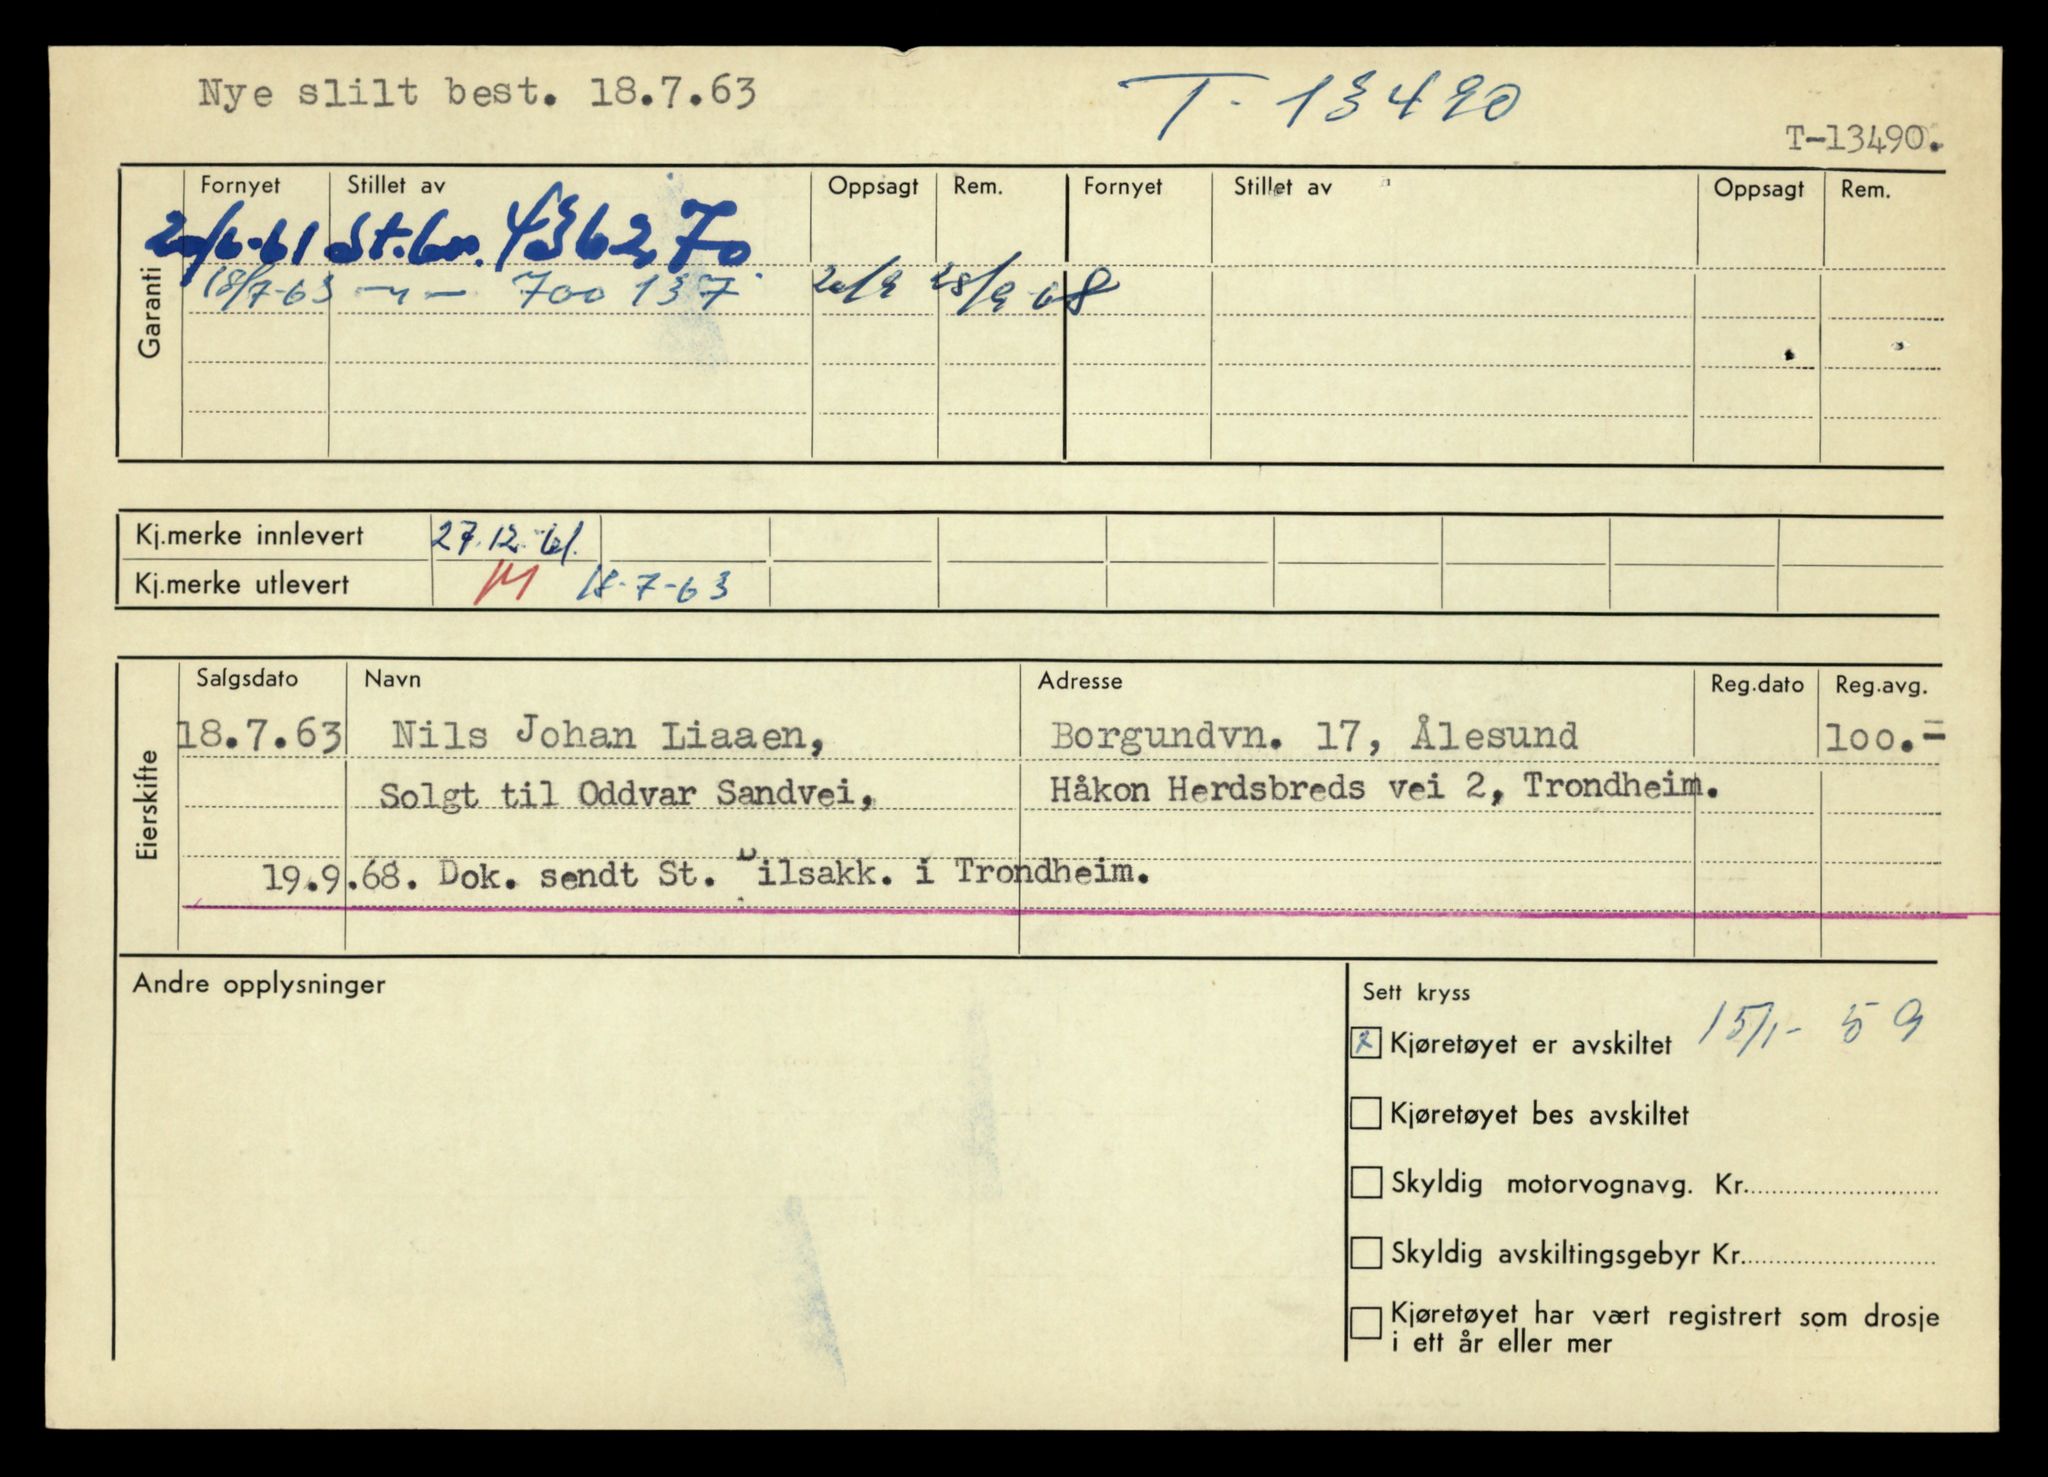 Nye slilt best. 18.7.63
T-13490
T-13490.
Garanti
Fornyet Stillet av Oppsagt Rem. Fornyet Stillet av Oppsagt Rem.
20/6-61 St.br. 436270
18/7-63 —"— 700137 20/9 28/9-68
Kj.merke innlevert 27.12.61.
Kj.merke utlevert M 18-7-63
Eierskifte
Salgsdato Navn Adresse Reg.dato Reg.avg.
18.7.63 Nils Johan Liaaen, Borgundvn. 17, Ålesund 100.-
Solgt til Oddvar Sandvei, Håkon Herdsbreds vei 2, Trondheim.
19.9.68. Dok. sendt St. Bilsakk. i Trondheim.
Andre opplysninger
Sett kryss
x Kjøretøyet er avskiltet 15/1-59
Kjøretøyet bes avskiltet
Skyldig motorvognavg. Kr.
Skyldig avskiltingsgebyr Kr.
Kjøretøyet har vært registrert som drosje
i ett år eller mer